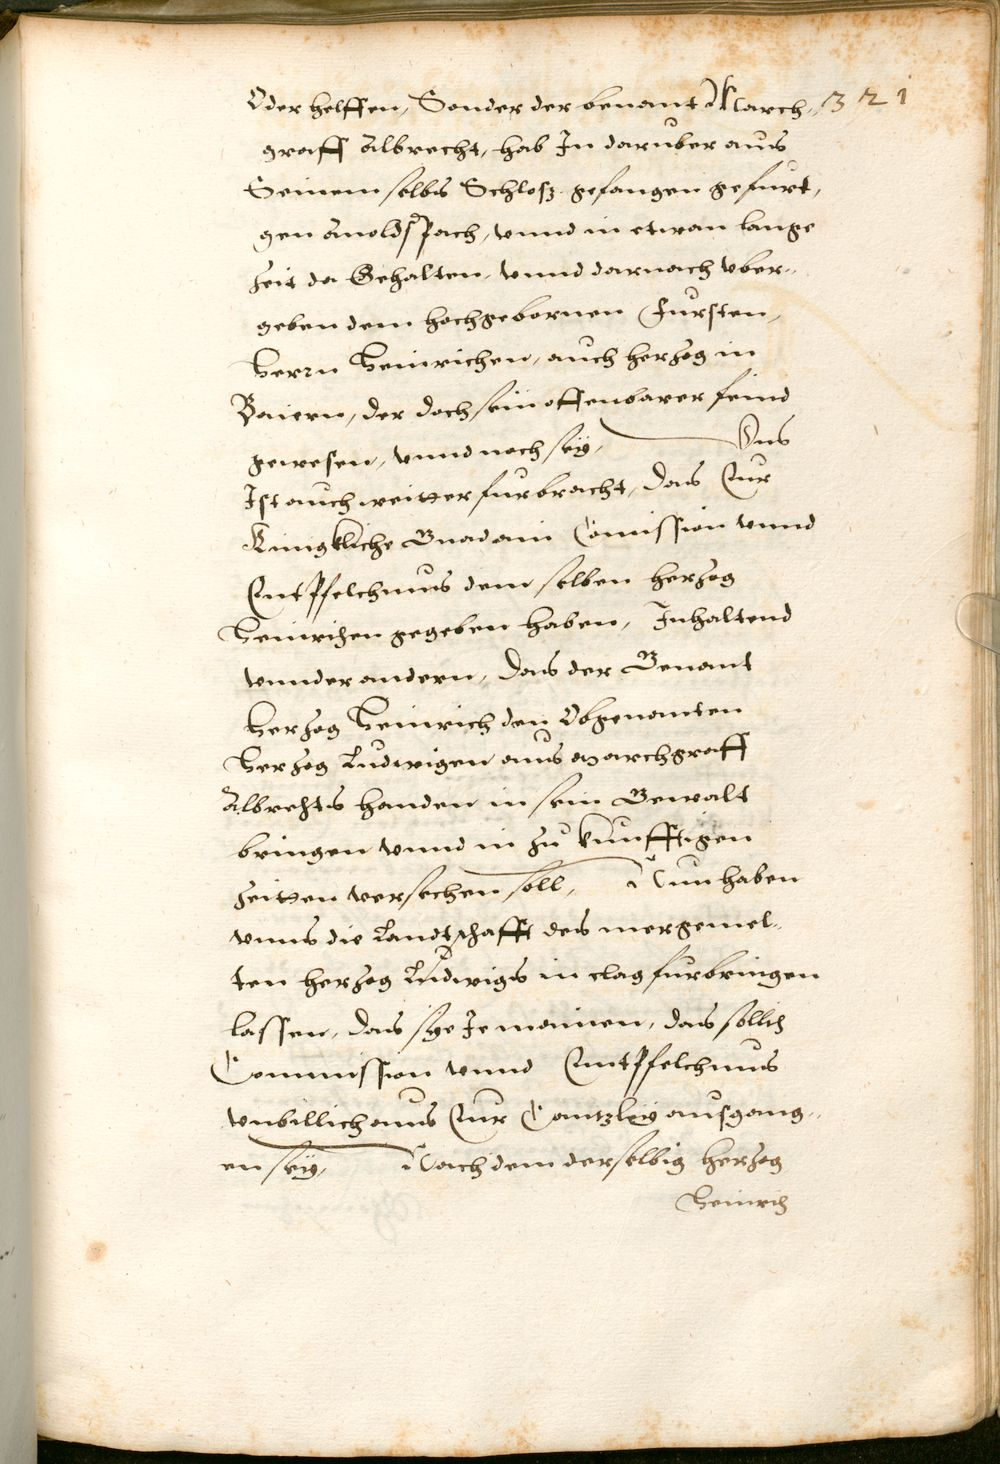 Oder helffen, Sonder der benant March- 321
graff Albrecht, hab In daruber aus
Seinem selbs Schlosz gefangen gefurt,
gen Anoldspach, vnnd in etwan lange
zeit da Gehalten, vnnd darnach vber-
geben dem hochgebornen Fursten,
Herrn Heinrichen, auch herzog in
Baiern, der doch sein offenbarer feind
gewesen, vnnd noch sey, Vns
Ist auch weitter furbracht, das Eur
Kungkliche Gnad ain Comission vnnd
Entpfelchnus dem selben herzog
Heinrichen gegeben haben, Inhaltend
vnnder andern, das der Benant
Herzog Heinrich den Obgenanten
Herzog Ludwigen aus Marchgraff
Albrechts handen in sein Gewalt
bringen vnnd in zu kunfftigen
zeitten versechen soll, Nun haben
vnns die Landtschafft des mergemel-
ten herzog Ludwigs in clag furbringen
lassen, das sye Je mainen, das sollich
Commission vnnd Entpfelchnus
vnbillich aus Eur Cantzley ausgang-
en sey, Nach dem derselbig herzog
Heinrich